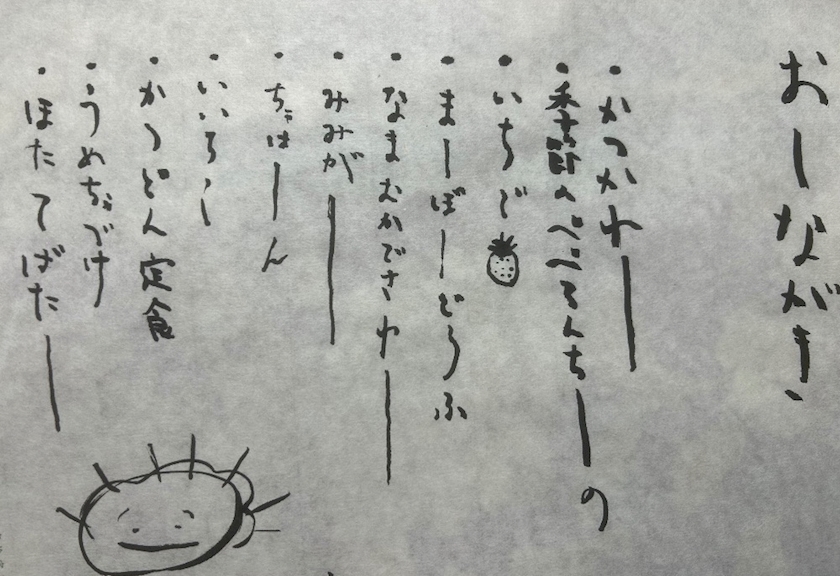 おーながき
・かつかれー
・季節のぺぺろんちーの
・いちご
・まーぼーどうふ
・なまむかでさわー
・みみがー
・ちゃはーん
・いいろー
・かつどん定食
・うめぢゃづけ
・ほたてばたー